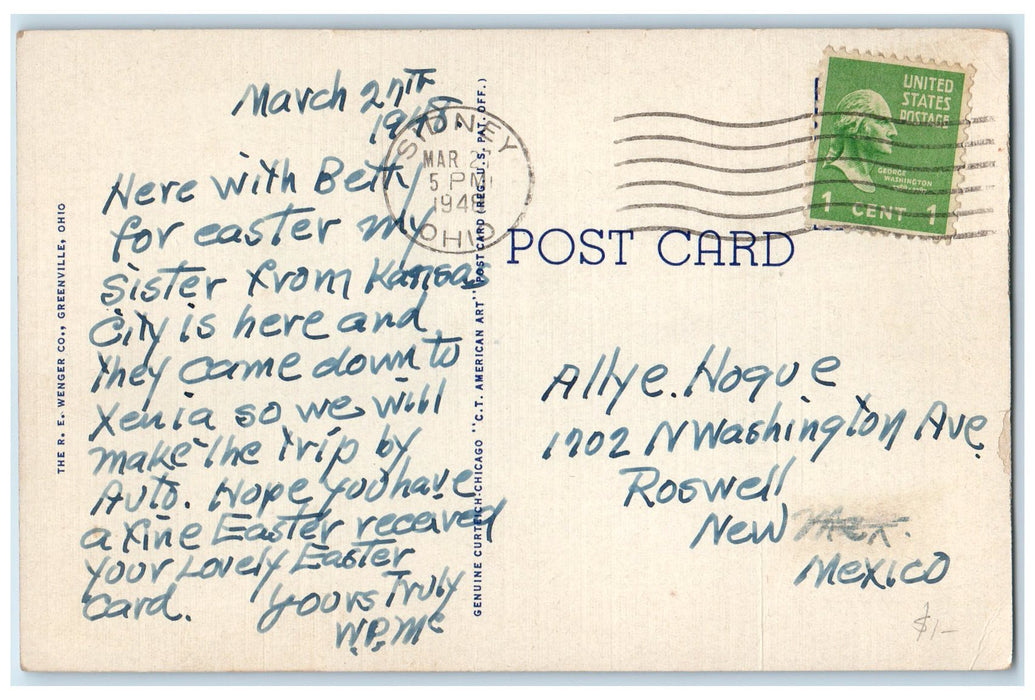 March 27th
1948.
Here with Betty
for easter my
sister from Kansas
City is here and
they came down to
Xenia so we will
make the trip by
Auto. Hope you have
a fine Easter received
your Lovely Easter
Card.
Yours Truly
W.P. Mc
THE R. E. WENGER CO., GREENVILLE, OHIO
GENUINE CURTEICH-CHICAGO "C.T. AMERICAN ART" POST CARD (REG. U.S. PAT. OFF.)
SIDNEY
MAR 27
5 PM
1948
OHIO
UNITED
STATES
POSTAGE
GEORGE
WASHINGTON
1 CENT 1
POST CARD
Allye. Hogue
1702 N Washington Ave
Roswell
New Mex.
Mexico
$1-